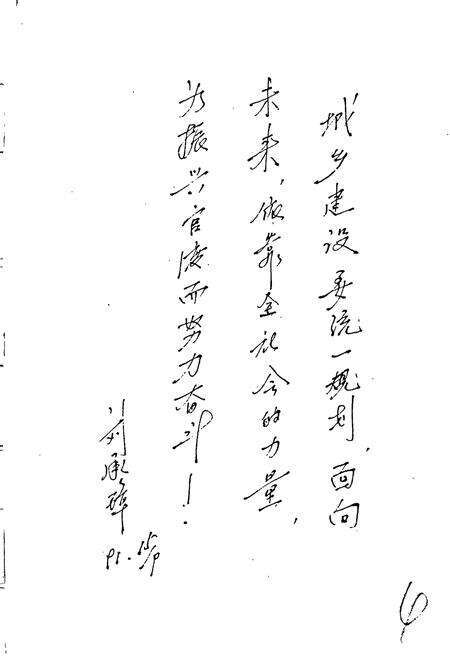 城乡建设要统一规划,面向
未来,依靠全社会的力量,
为振兴官渡而努力奋斗!
刘承
91.
4